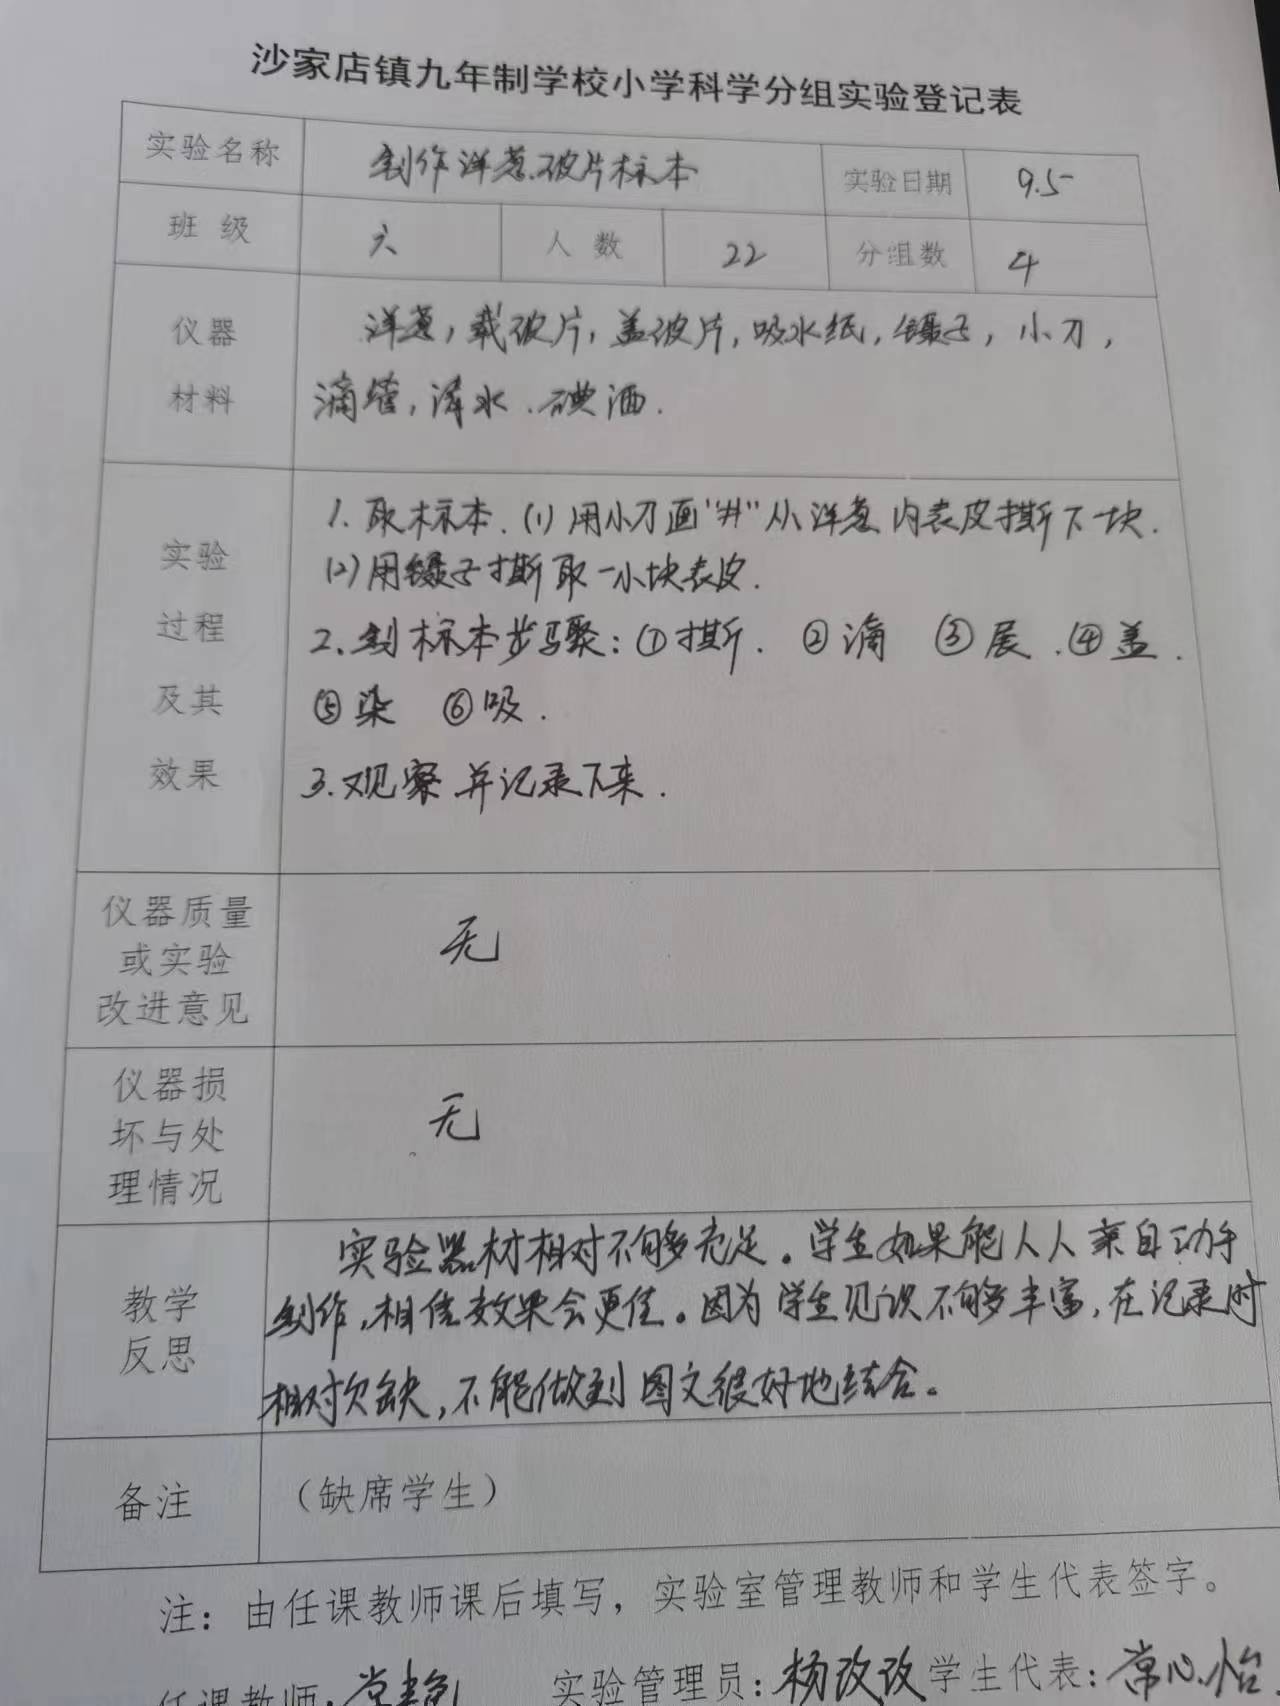 沙家店镇九年制学校小学科学分组实验登记表
实验名称 制作洋葱玻片标本 实验日期 9.5
班 级 六 人 数 22 分组数 4
仪器
材料
洋葱,载玻片,盖玻片,吸水纸,镊子,小刀,
滴管,清水.碘酒.
实验
过程
及其
效果
1.取标本.(1)用小刀画"井"从洋葱内表皮撕下一块.
(2)用镊子撕取一小块表皮.
2.制标本步骤:①撕. ②滴 ③展.④盖.
⑤染 ⑥吸.
3.观察并记录下来.
仪器质量
或实验
改进意见
无
仪器损
坏与处
理情况
无
教学
反思
实验器材相对不够充足。学生如果能人人亲自动手
制作,相信效果会更佳。因为学生见识不够丰富,在记录时
相对欠缺,不能做到图文很好地结合。
备注 (缺席学生)
注:由任课教师课后填写,实验室管理教师和学生代表签字。
任课教师: 实验管理员:杨改改 学生代表:常心怡